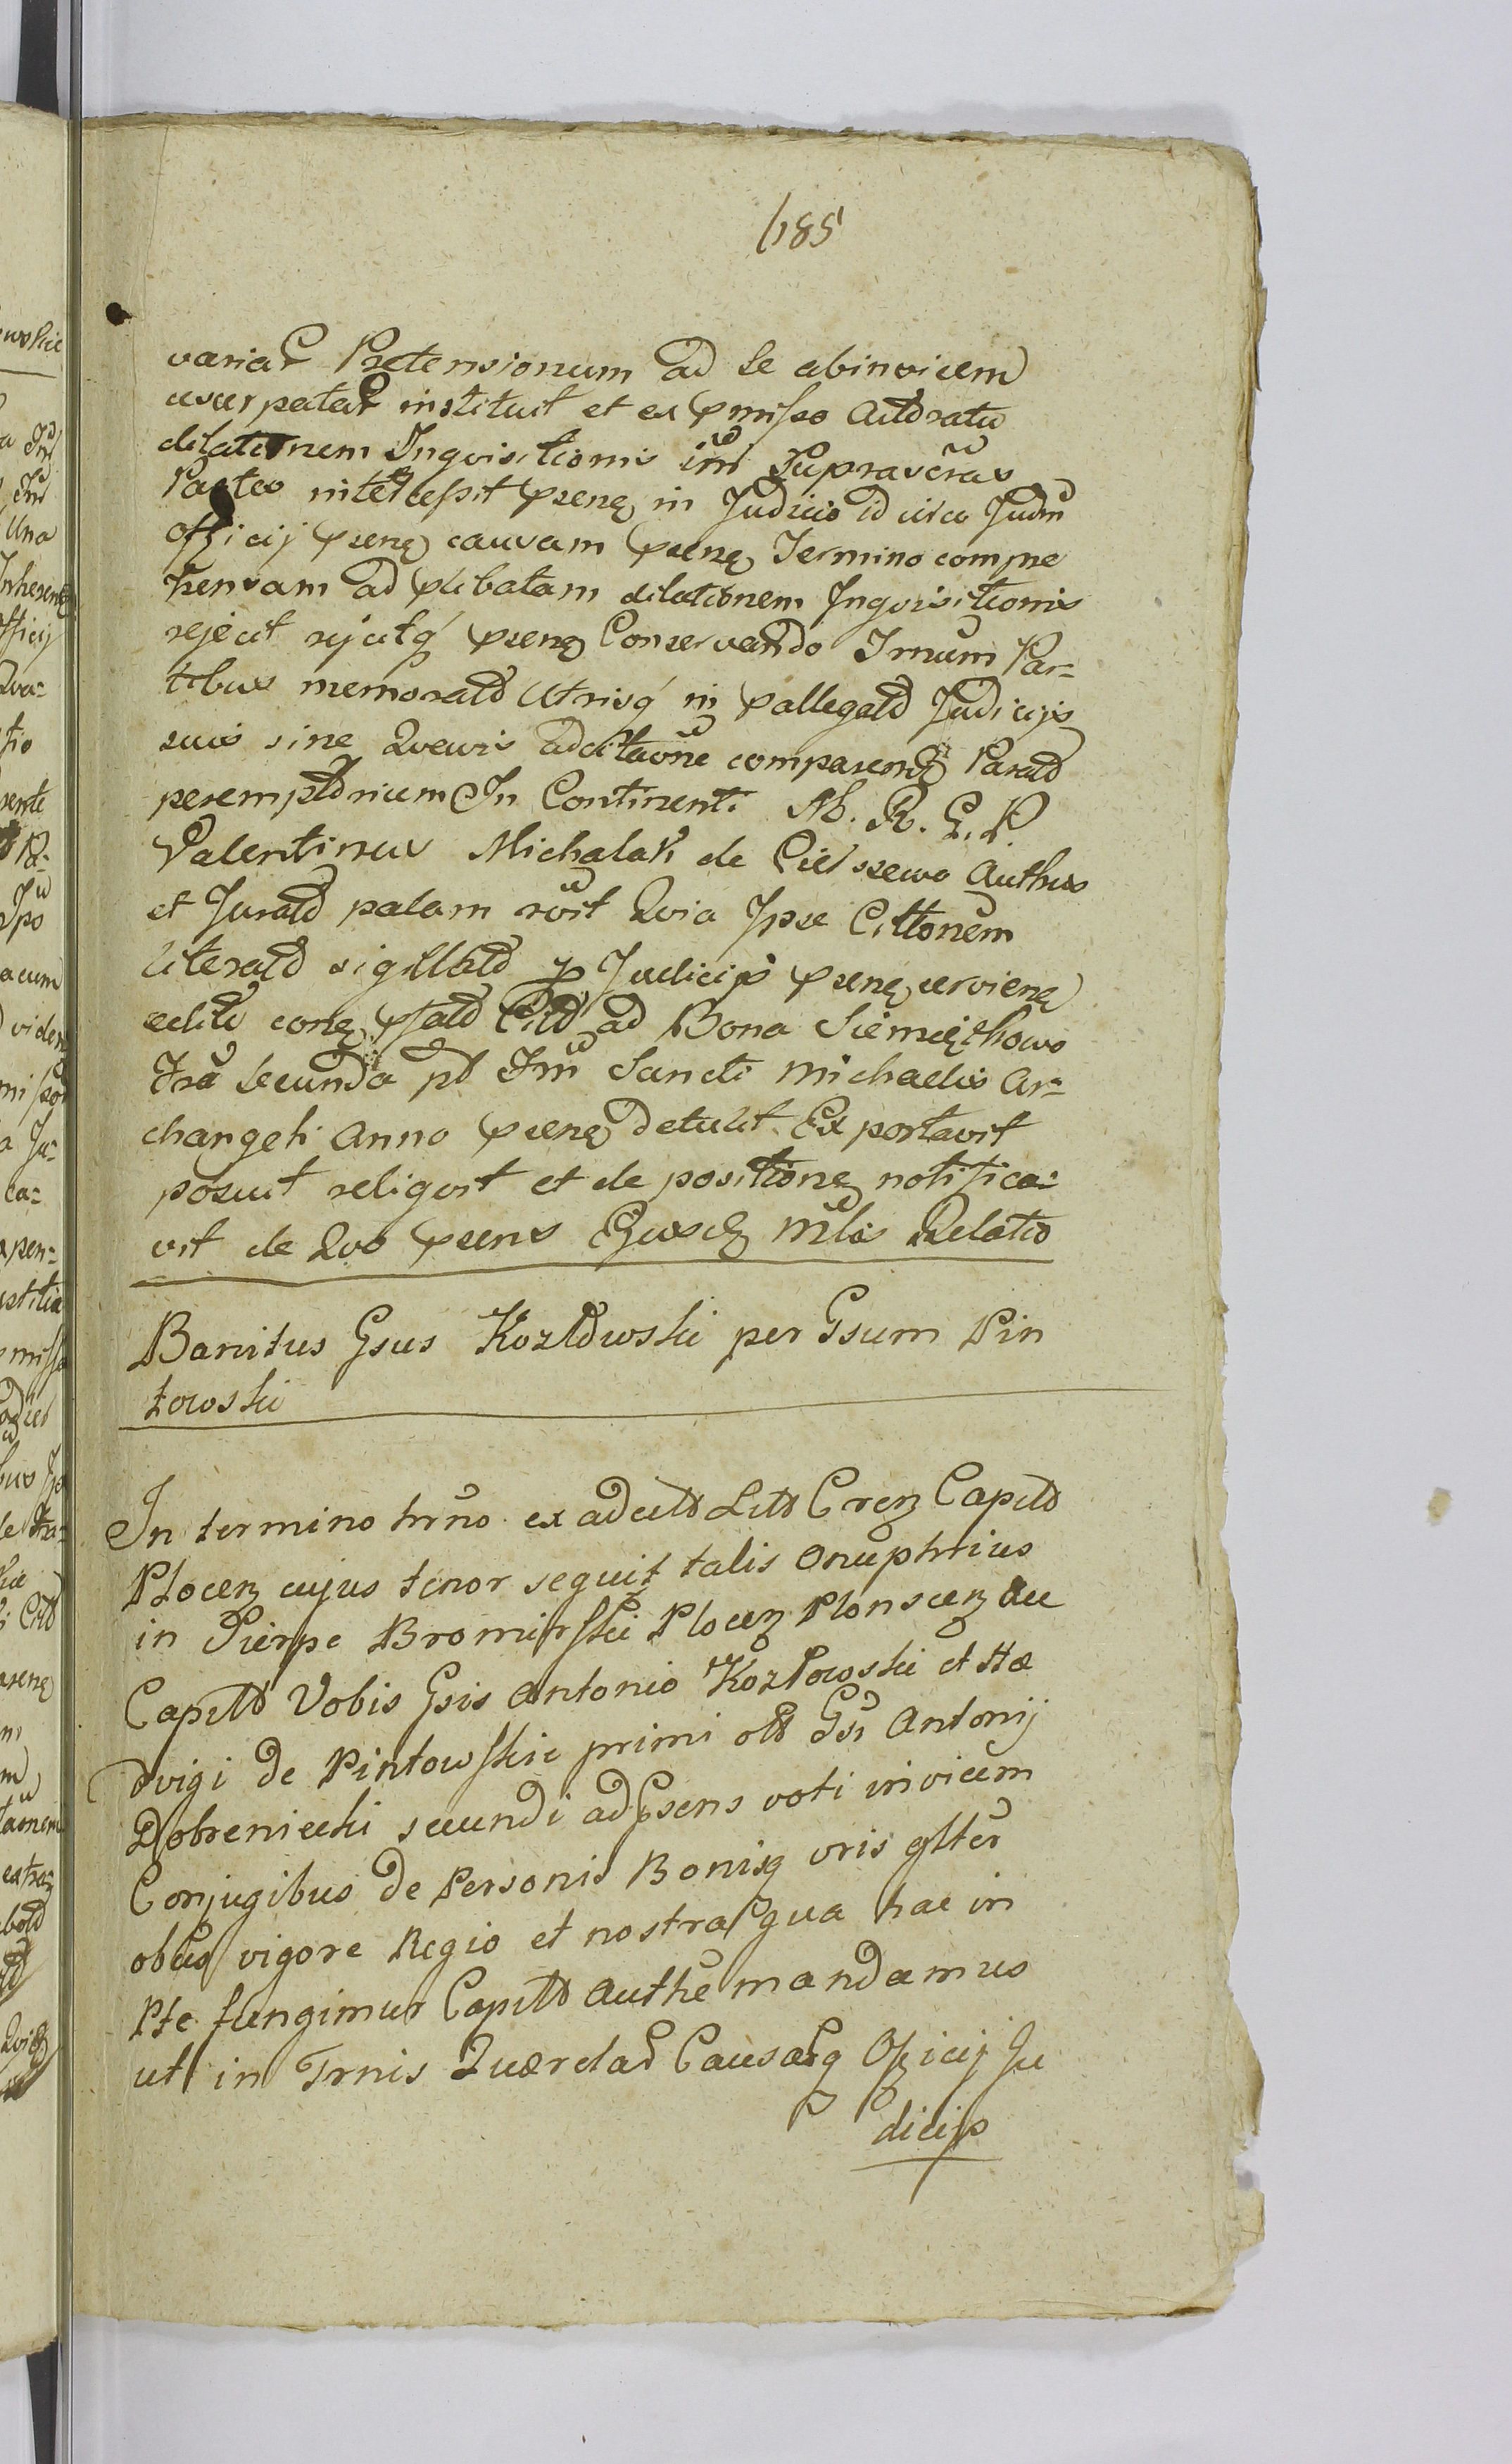 185
variar Prætensionum ad se abinvicem
usurpatar instituit et ex pmisso actoratu
dilationem Inqvisitionis int Suprascras
Partes intercessit psens in Judicio id circo Judm
Officij psens causam psens Termino compre
hensam ad plibatam dilationem Inqvisitionis
rejecit rejicitq psens Conservando Trnum Par=
tibus memorato utrisq in pallegato Judicijs
suis sine Qvavis adcitaone comparens Parato
peremptorium In Continenti M. R. G. P
Valentinus Michalak de Cieszewo Authus
et Jurato palam rcvit Qvia Ipse Cittonem
literato sigillato p Judicijs psens serviens
edito cone psato Cito ad Bona Siemiętkowo
fra secunda pt Fm Sancti Michaelis Ar=
changeli Anno psens detulit Exportavit
posuit reliqvit et de positione notifica=
vit de Qvo psens Ejusd mlis Relatio
Banitus Gsus Kozłowski per Gsum Pin
towski
In termino hrno ex adcitt Litt Crez Capitt
Plocen cujus tenor sequit talis Onuphrius
in Sierpc Bromirski Plocen Plonscen &c
Capitt Vobis Gsis Antonio Kozłowski et Hæ
dvigi de Pintowskie primi ott Gsi Antonij
Dobreniecki secundi ad psens voti invicem
Conjugibus de Personis Bonisq vris gltter
obusq vigore Regio et nostra qua hac in
Pte fungimur Capitt Authe mandamus
ut in Trnis Querelar Causarq Officij Ju
dicijs